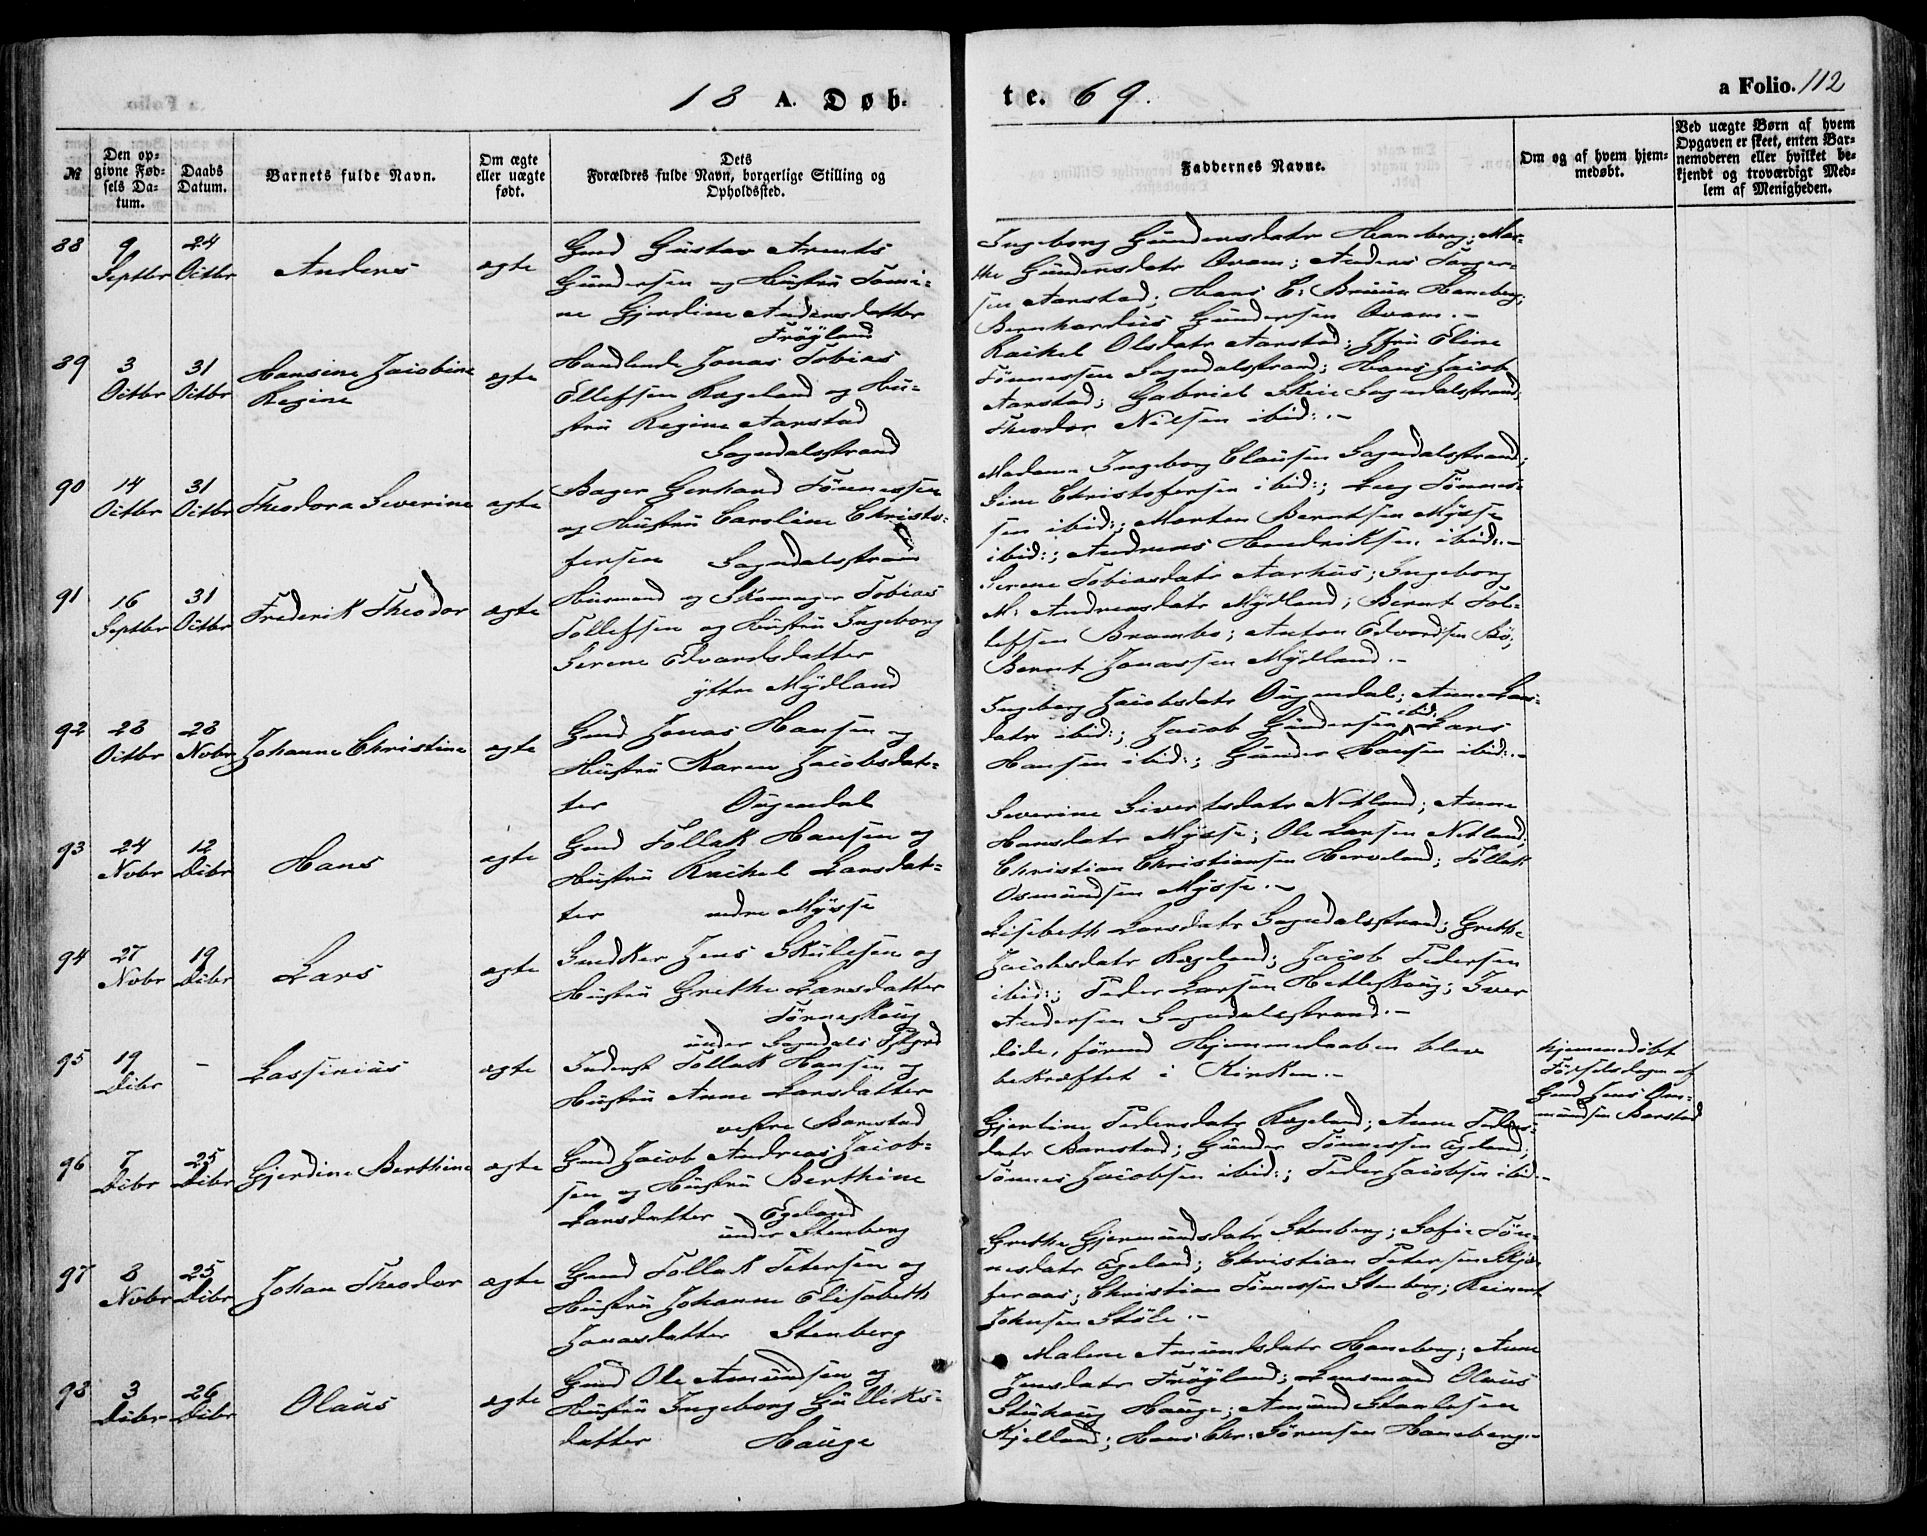 18 A. Døb-
te. 69.
a Folio. 112
№
Den op-
givne Fød-
sels Da-
tum.
Daabs
Datum.
Barnets fulde Navn.
Om ægte
eller uægte
født.
Dets
Forældres fulde Navn, borgerlige Stilling og
Opholdssted.
Faddernes Navne.
Om og af hvem hjem-
medøbt.
Ved uægte Børn af hvem
Opgaven er skeet, enten Bar-
nemoderen eller hvilket be-
kjendt og troværdigt Med-
lem af Menigheden.
88
9
Septbr
24
Octbr
Anders
ægte
Gmd Gustav Arents
Gundersen og Hustru Tomi-
ne Gjerdine Andersdatter
Frøyland
Ingeborg Gundersdatr Haneberg; Mar-
the Gundersdatr Qvam; Anders Tanger-
sen Aarstad; Hans C: Bruun Haneberg;
Bernhardus Gundersen Qvam.-
89
3
Octbr
31
Octbr
Hansine Jacobine
Regine
ægte
Handlende Jonas Tobias
Ellefsen Rægeland og Hu-
stru Regine Aarstad
Sogndalsstrand
Rachel Olsdatr Aarstad; Jfru Eline
Tønnessen Sogndalsstrand; Hans Jacob
Aarstad; Gabriel Skeie Sogndalsstrand;
Theodor Nilsen ibid:.-
90
14
Octbr
31
Octbr
Theodora Severine
ægte
Bager Gerhard Tønnessen
og Hustru Caroline Christo-
fersen Sogndalsstrand
Madame Ingeborg Clausen Sogndalsstrand;
Sine Christofersen ibid:; Leeg Tønnes-
sen ibid:; Morten Berntsen Mysse
ibid:; Andreas Hendriksen ibid:.-
91
16
Septbr
31
Octbr
Frederik Theodor
ægte
Husmand og Skomager Tobias
Tollefsen og Hustru Ingeborg
Serene Edvardsdatter
yttre Mydland
Serene Tobiasdatr Aarhus; Ingeborg
M: Andreasdatr Mydland; Bernt Tol-
lefsen Brambo; Anton Edvardsen Bø;
Bernt Jonassen Mydland.-
92
28
Octbr
28
Novbr
Johanne Christine
ægte
Gmd Jonas Hansen og
Hustru Karen Jacobsdat-
ter Ougendal
Ingeborg Jacobsdatr Ougendal; Anne Lars-
datr ibid:; Jacob Gundersen ibid: Lars
Hansen ibid:; Gunder Hansen ibid:.-
93
24
Novbr
12
Dcbr
Hans
ægte
Gmd Tollak Hansen og
Hustru Rachel Larsdat-
ter nedre Mysse
Severine Sivertsdatr Netland; Anne
Hansdatr Mysse; Ole Larsen Netland;
Christian Christiansen Herveland; Tollak
Osmundsen Mysse.-
94
27
Novbr
19
Dcbr
Lars
ægte
Snedker Jens Skulesen og
Hustru Grethe Larsdatter
Tønneskoug
under Sogndals Pstgrd
Lisebeth Larsdatr Sogndalsstrand; Grethe
Jacobsdatr Rægeland; Jacob Pedersen
ibid:; Peder Larsen Hetleskoug; Iver
Andersen Sogndalsstrand.-
95
19
Dcbr
-
Lassinius
ægte
Inderst Tollak Hansen og
Hustru Anne Larsdatter
vestre Barstad
døde, førend Hjemmedaaben blev
bekræftet i Kirken.-
Hjemmedøbt
Fødselsdagen af
Gmd Jens Os-
mundsen Barstad
96
7
Dcbr
25
Dcbr
Gjerdine Berthine
ægte
Gmd Jacob Andreas Jacob-
sen og Hustru Berthine
Larsdatter Egeland
under Stenberg
Gjertine Pedersdatr Rægeland; Anne Peders-
datr Barstad; Gunder Tønnessen Egeland;
Tønnes Jacobsen ibid:; Peder Jacobsen ibid.-
97
8
Novbr
25
Dcbr
Johan Theodor
ægte
Gmd Tollak Petersen og
Hustru Johanne Elisabeth
Jonasdatter Stenberg
Grethe Gjermundsdatr Stenberg; Sofie Tøn-
nesdatr Egeland; Christian Petersen Skjæ-
feraas; Christian Tønnessen Stenberg; Reinert
Johnsen Støle.-
98
3
Dcbr
26
Dcbr
Olaus
ægte
Gmd Ole Amundsen og
Hustru Ingeborg Gulliks-
datter Hauge
Malene Amundsdatr Haneberg; Anne
Jensdatr Frøyland; Lensmand Olaus
Hauge; Amund Staalesen
Kjelland; Hans Chr: Sørensen Haneberg.-